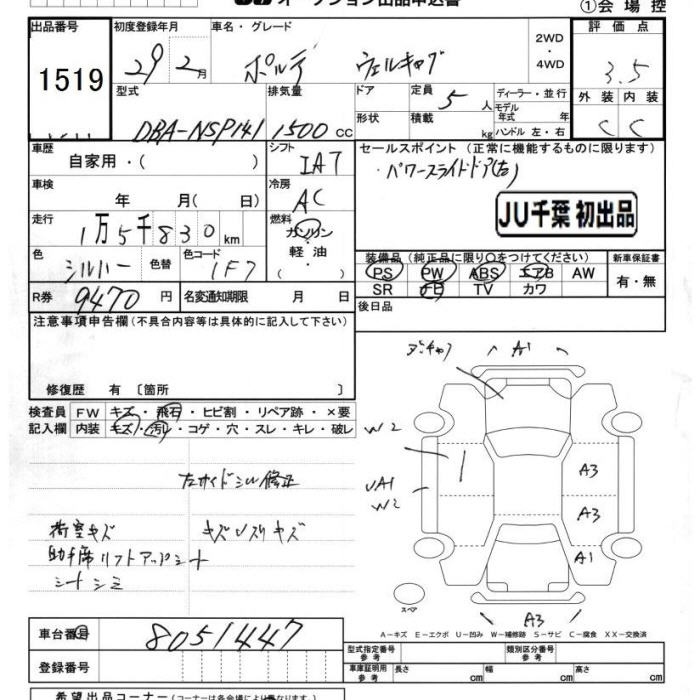 オークション出品申込書
①会場控
出品番号
1519
初度登録年月
29年2月
車名・グレード
ポルテ ウェルキャブ
2WD
・
4WD
評価点
3.5
外装 内装
C C
型式
DBA-NSP141
排気量
1500cc
ドア
形状
定員 5人
積載 kg
ディーラー・並行
モデル年式 年
ハンドル 左・右
車歴
自家用・( )
シフト
IA7
セールスポイント (正常に機能するものに限ります)
・パワースライドドア(右)
JU千葉 初出品
車検
年 月( 日)
冷房
AC
走行
1万5千830km
燃料
ガソリン
・
軽・油
・( )
色
シルバー
色替
色コード
1F7
装備品 (純正品に限り○をつけてください)
PS PW ABS エアB AW
SR ナビ TV カワ
新車保証書
有・無
R券 9470円
名変通知期限 月 日
後日品
注意事項申告欄(不具合内容等は具体的に記入して下さい)
修復歴 有 〔箇所 〕
検査員
記入欄
FW キズ・飛石・ヒビ割・リペア跡・×要
内装 キズ・汚レ・コゲ・穴・スレ・キレ・破レ
左サイドシル修正
荷室キズ
助手席リフトアップシート
シートシミ
A1
W2
UA1
W2
A3
A3
A1
A3
スペア
A-キズ E-エクボ U-凹み W-補修跡 S-サビ C-腐食 XX-交換済
車台番号 8051447
登録番号
型式指定番号
参考
類別区分番号
参考
車庫証明用
参考
長さ cm
幅 cm
高さ cm
希望出品コーナー(コーナーは各会場により異なります。)